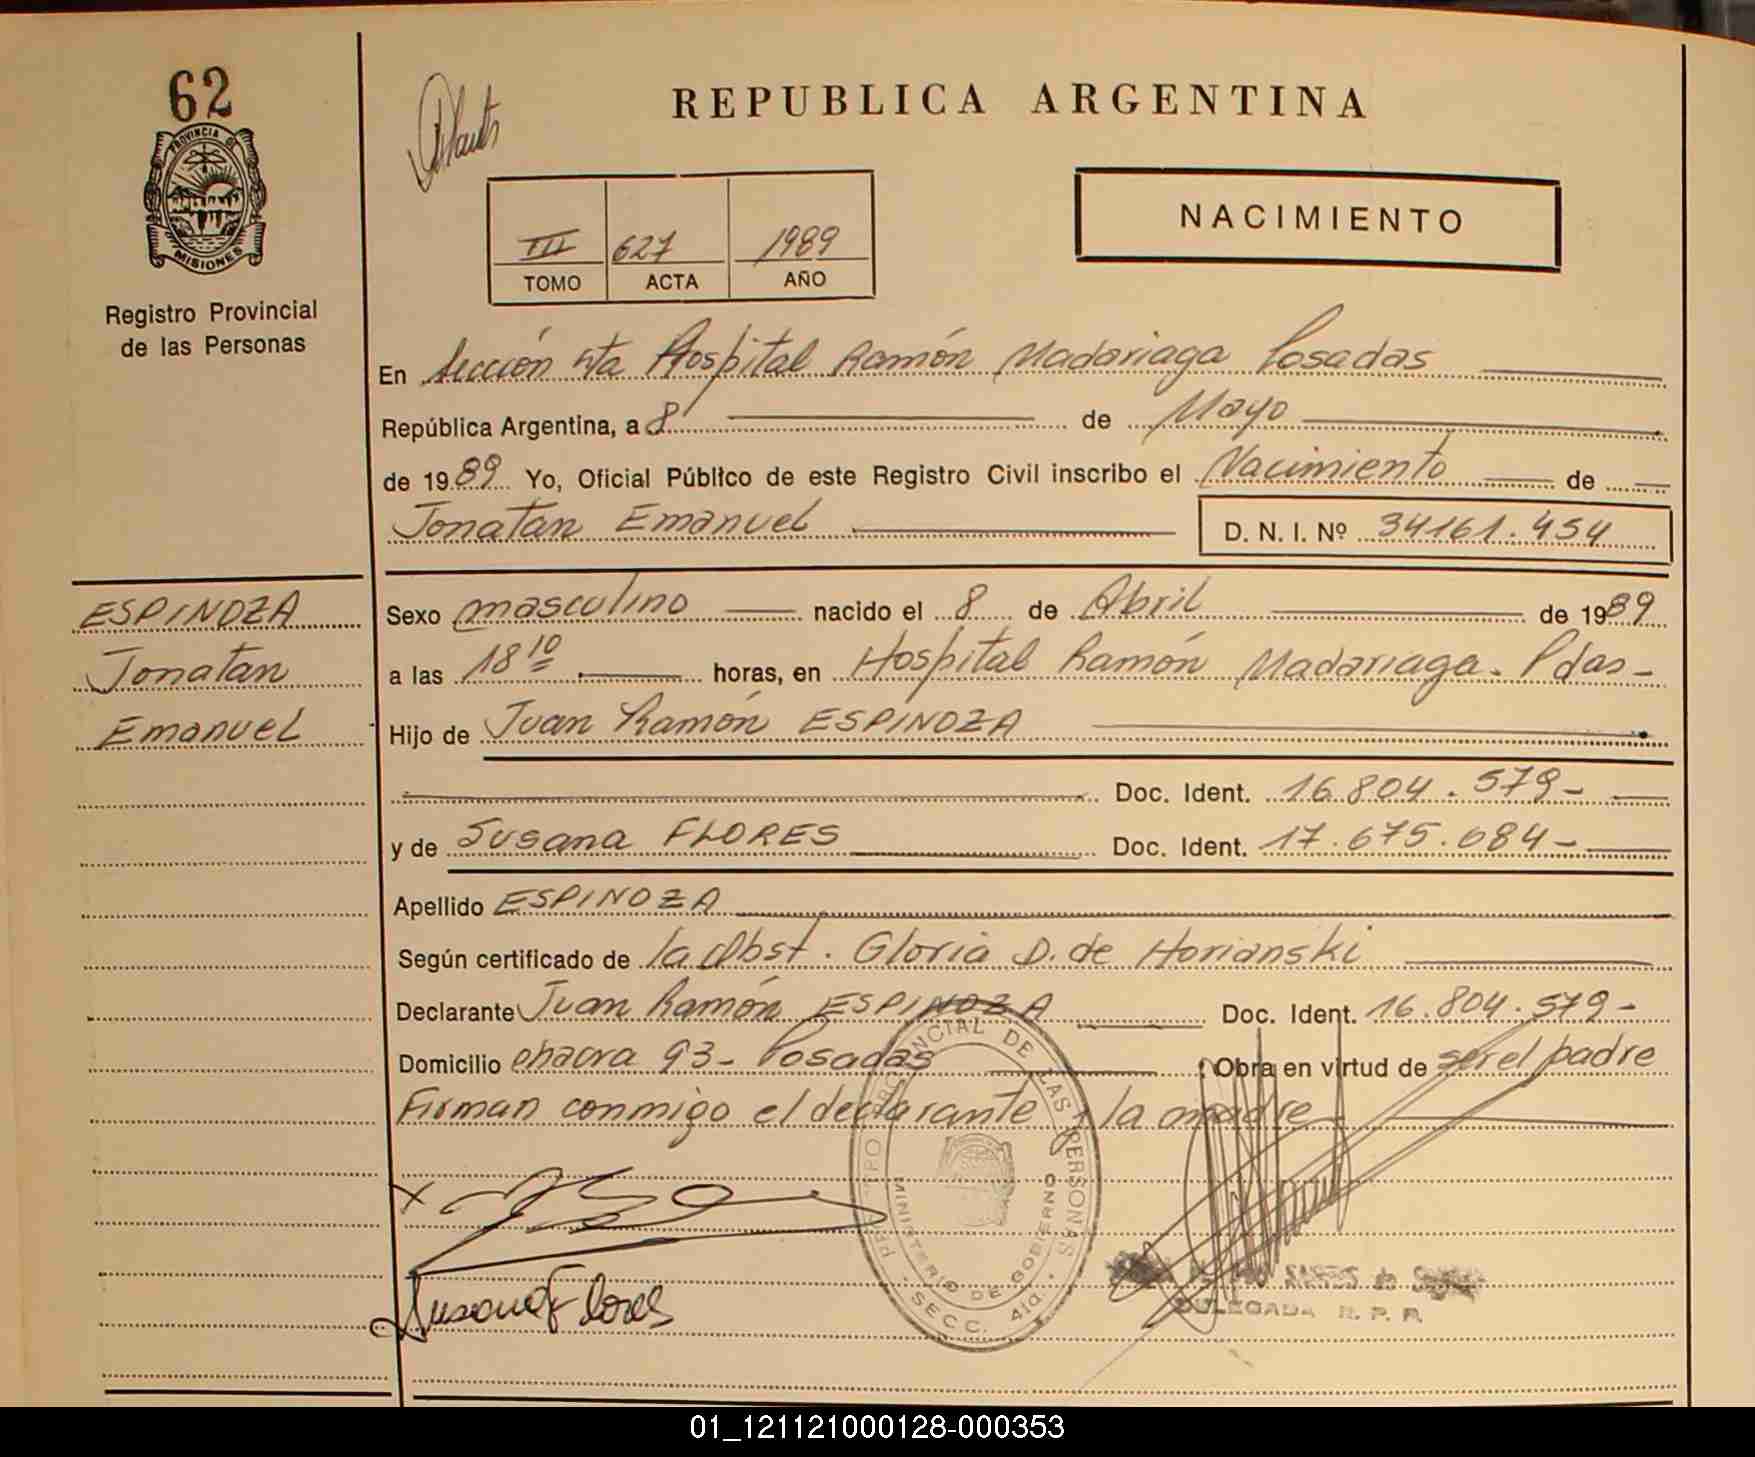 62
PROVINCIA DE
MISIONES
Registro Provincial
de las Personas
REPUBLICA ARGENTINA
III 627 1989
TOMO ACTA AÑO
NACIMIENTO
En Sección 4ta Hospital Ramón Madariaga Posadas
República Argentina, a 8 de Mayo
de 1989 Yo, Oficial Público de este Registro Civil inscribo el Nacimiento de
Jonatan Emanuel D. N. I. Nº 34161.454
ESPINOZA
Jonatan
Emanuel
Sexo masculino nacido el 8 de Abril de 1989
a las 18 10 horas, en Hospital Ramón Madariaga. Pdas-
Hijo de Juan Ramón ESPINOZA
Doc. Ident. 16.804.579-
y de Susana FLORES Doc. Ident. 17.675.684-
Apellido ESPINOZA
Según certificado de la Obst. Gloria D. de Horianski
Declarante Juan Ramón ESPINOZA Doc. Ident. 16.804.579-
Domicilio chacra 93- Posadas Obra en virtud de ser el padre
Firman conmigo el declarante y la madre
Susana Flores
PROVINCIAL DE LAS PERSONAS
MINISTERIO DE GOBIERNO
SECC. 4ta.
DELEGADA R. P. P.
01_121121000128-000353